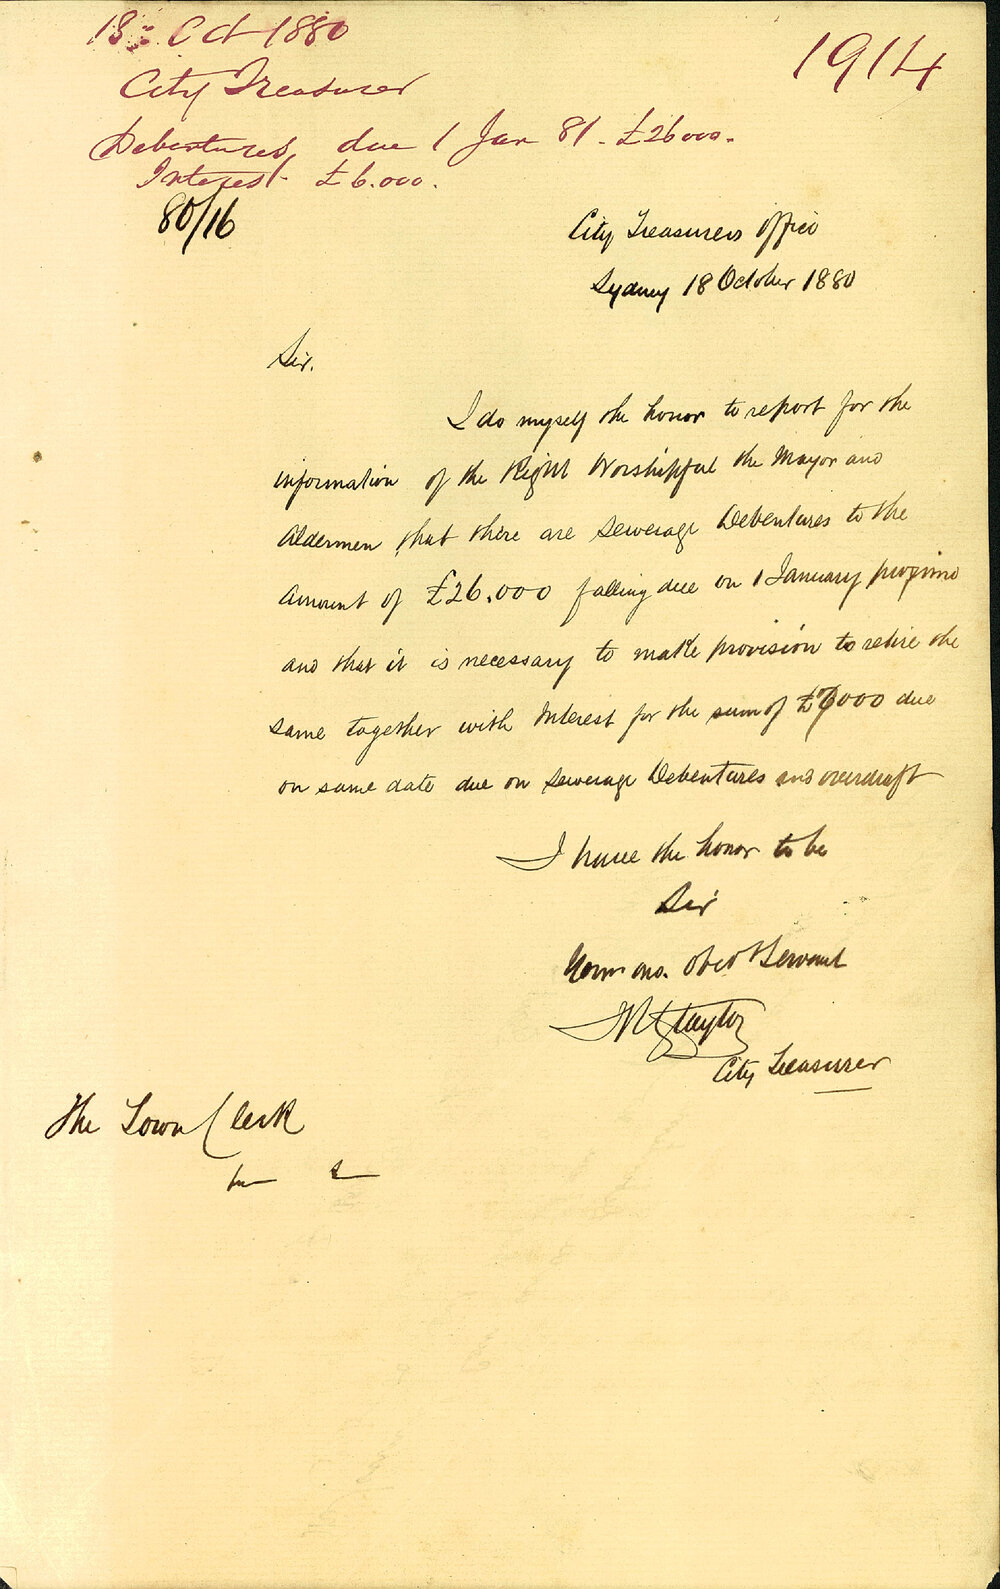 18: Oct 1880
1914
City Treasurer
Debentures due 1 Jan 81. £26000.
Interest £6.000.
80/16
City Treasurers Office
Sydney 18 October 1880
Sir.
I do myself the honor to report for the
information of the Right Worshipful the Mayor and
Aldermen that there are Sewerage Debentures to the
amount of £26.000 falling due on 1 January proximo
and that it is necessary to make provision to retire the
same together with Interest for the sum of £7000 due
on same date due on Sewerage Debentures and overdraft
I have the honor to be
Sir
Your mo. obed Servant
Taylor
City Treasurer
The Town Clerk